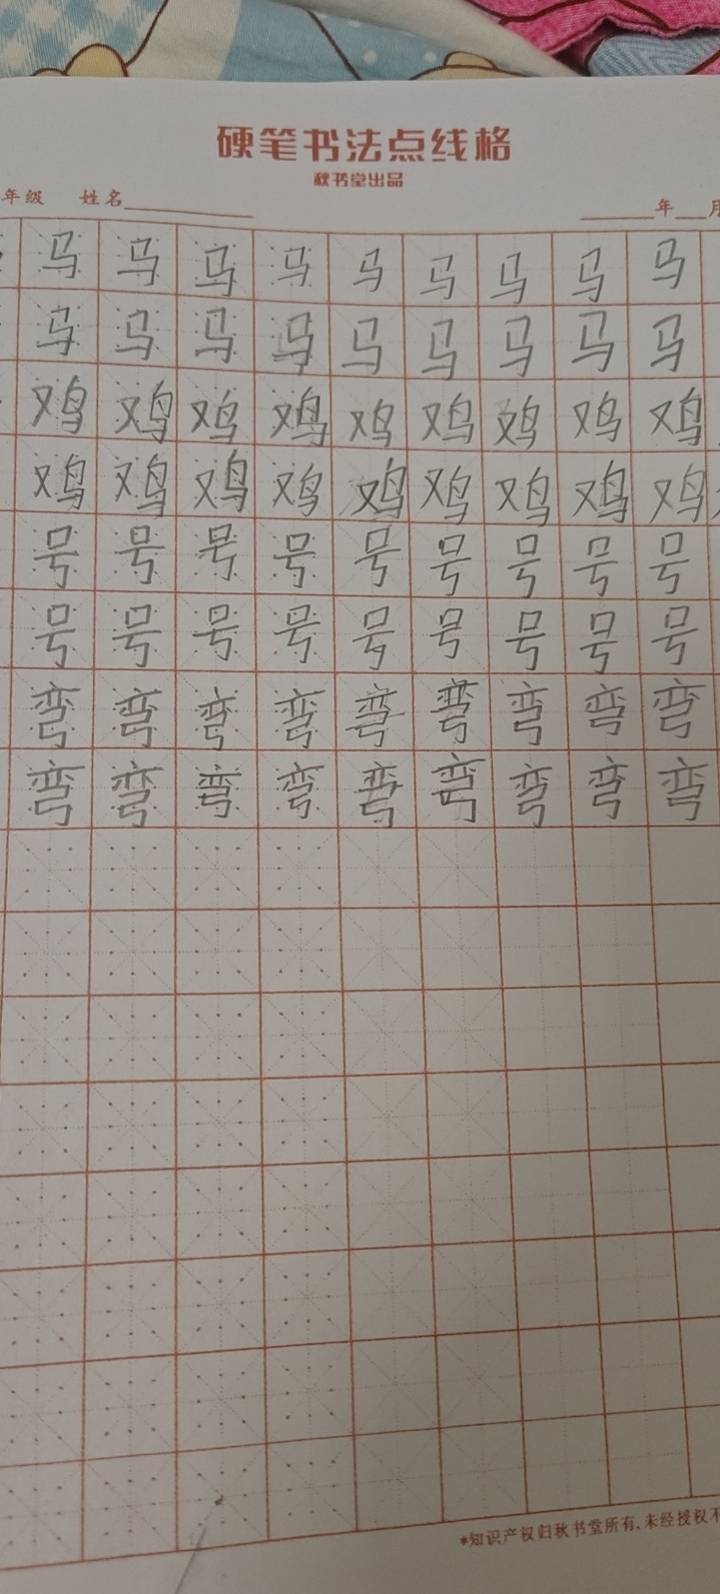 硬笔书法点线格
秋书堂出品
年级 姓名 年 月
马马马马马马马马马
马马马马马马马马马
鸡鸡鸡鸡鸡鸡鸡鸡鸡
鸡鸡鸡鸡鸡鸡鸡鸡鸡
号号号号号号号号号
号号号号号号号号号
弯弯弯弯弯弯弯弯弯
弯弯弯弯弯弯弯弯弯
*知识产权归秋书堂所有,未经授权不